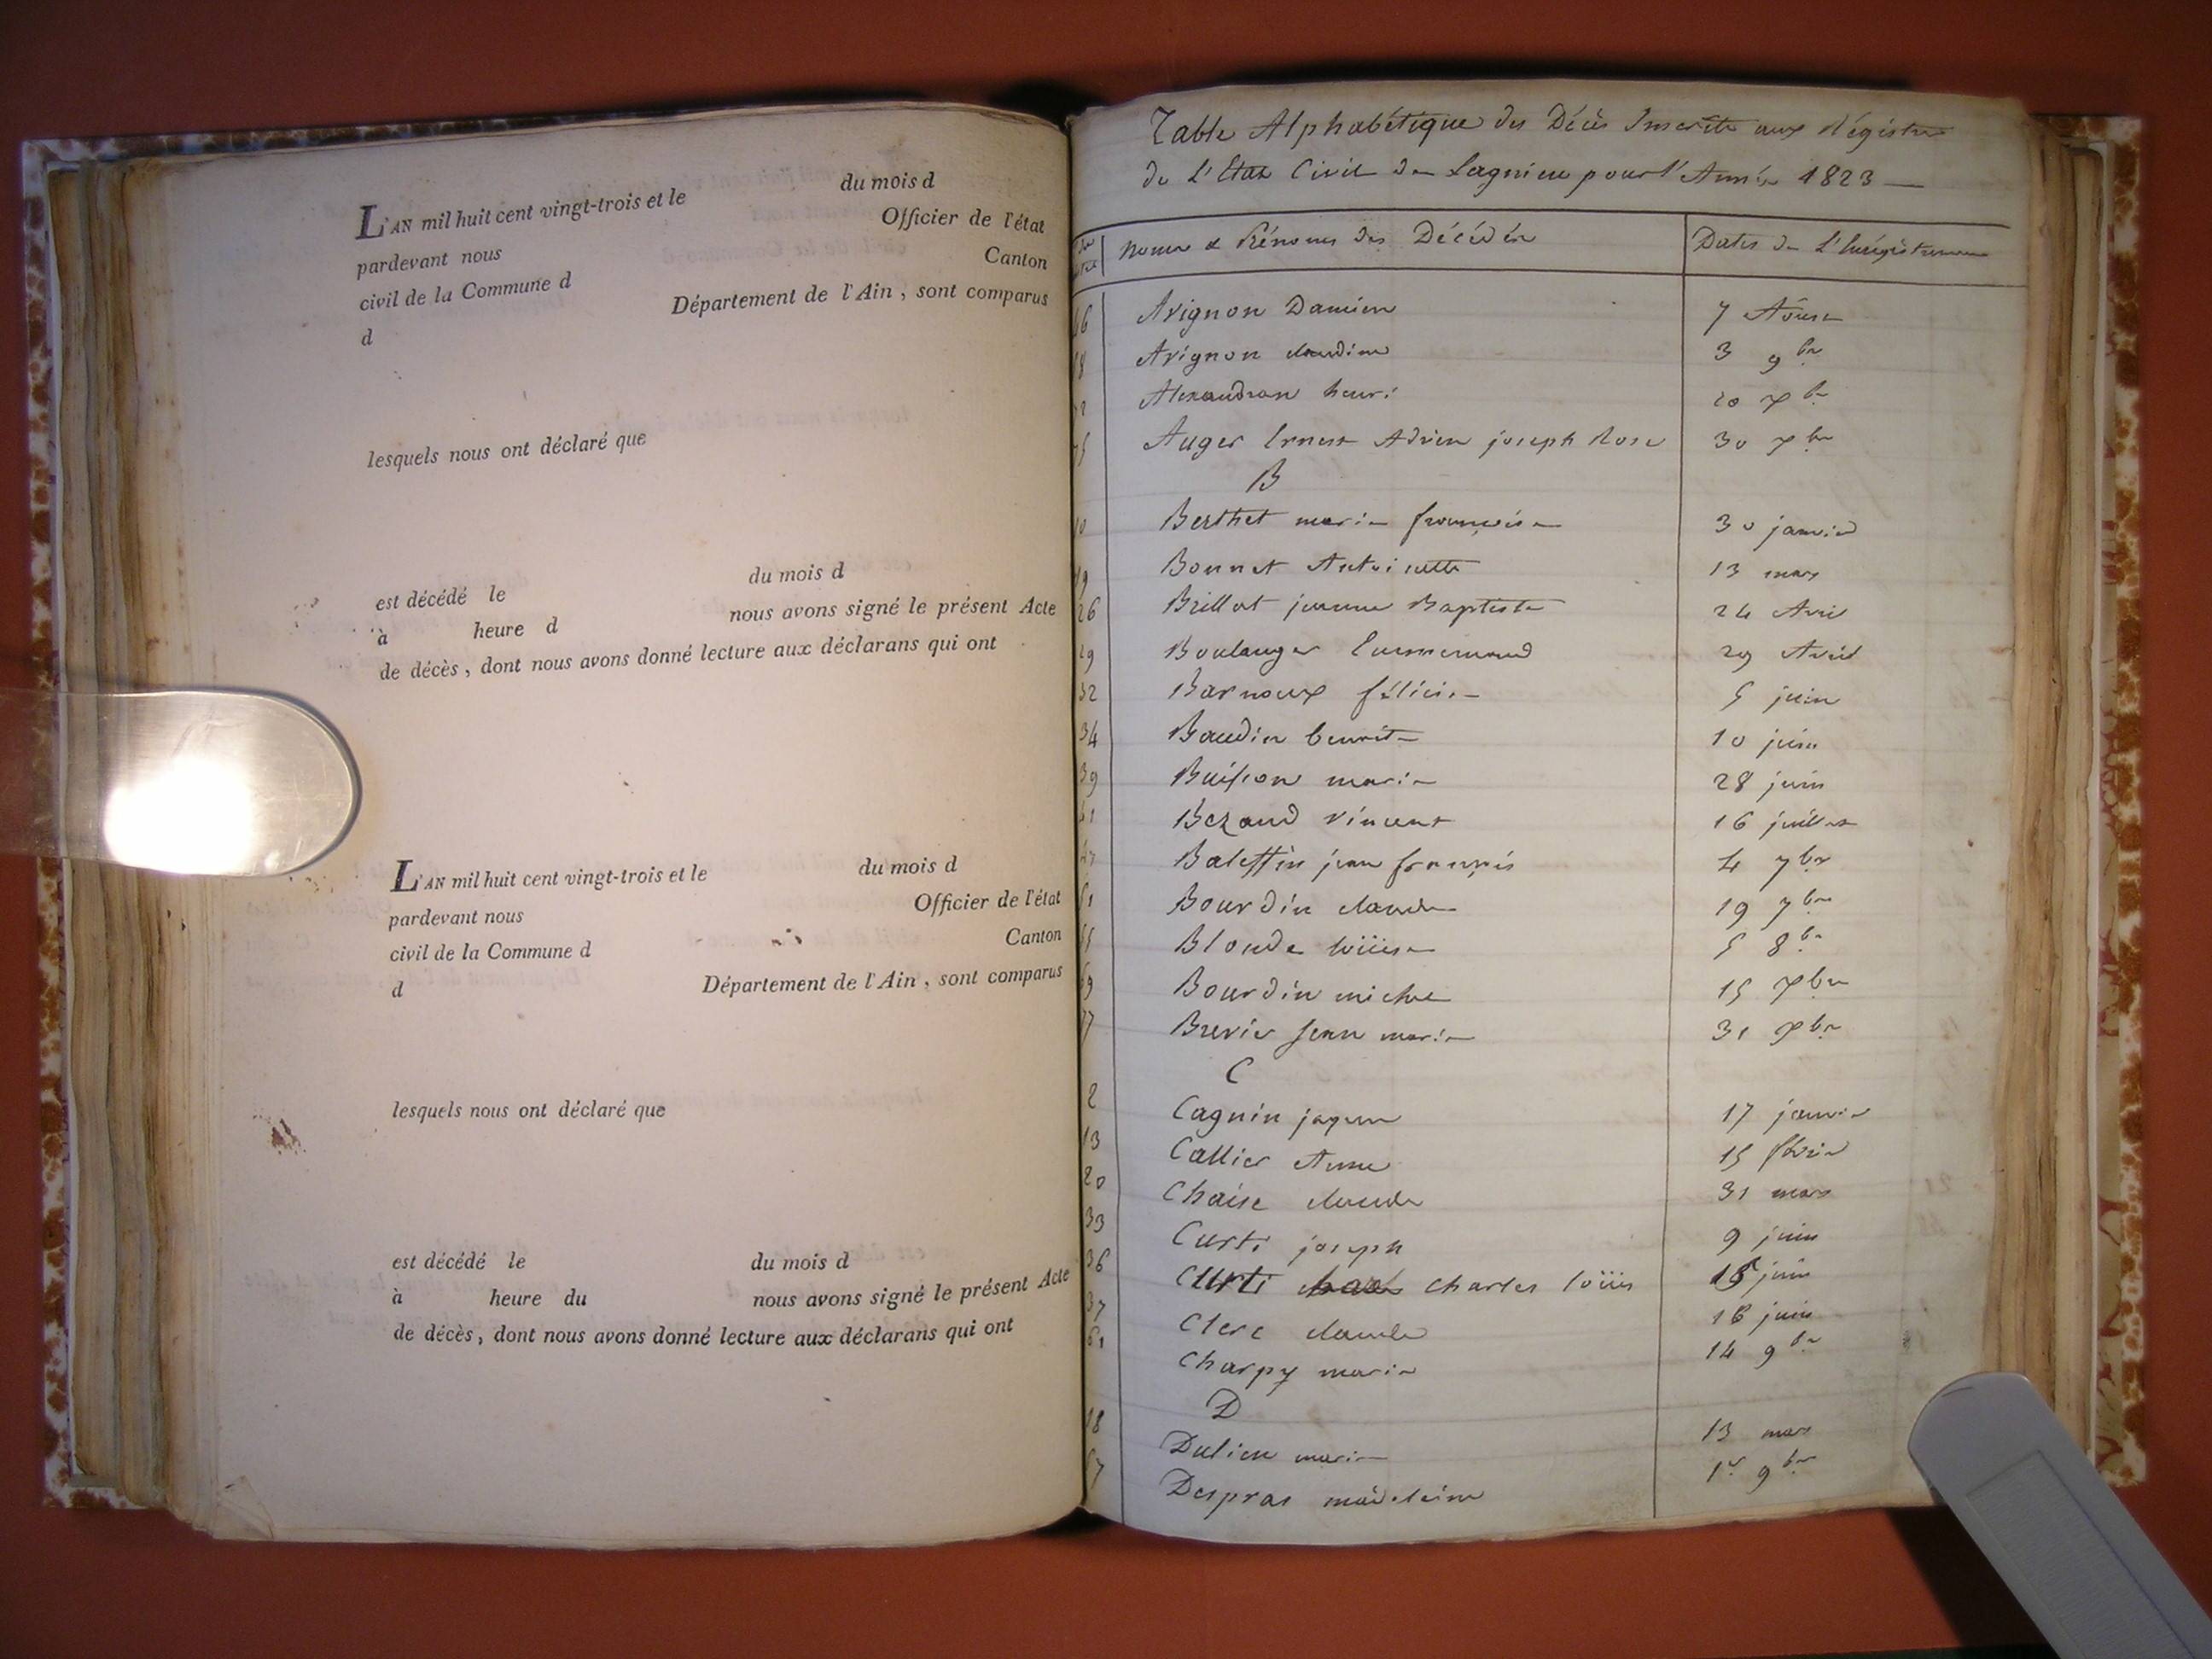 L'AN mil huit cent vingt-trois et le du mois d
pardevant nous Officier de l'état
civil de la Commune d Canton
d Département de l'Ain, sont comparus
lesquels nous ont déclaré que
est décédé le du mois d
à heure d nous avons signé le présent Acte
de décès, dont nous avons donné lecture aux déclarans qui ont
L'AN mil huit cent vingt-trois et le du mois d
pardevant nous Officier de l'état
civil de la Commune d Canton
d Département de l'Ain, sont comparus
lesquels nous ont déclaré que
est décédé le du mois d
à heure du nous avons signé le présent Acte
de décès, dont nous avons donné lecture aux déclarans qui ont
Table Alphabétique des Décès Inscrits aux Régistres
de L'Etat Civil de Lagnieu pour l'Année 1823
Noms & Prénoms des Décédés Dates de L'Enrégistrement
Avignon Damien 7 Aoust
Avignon claudine 3 9bre
Alexandran henri 20 Xbre
Auger Ernest Adrien joseph Rose 30 Xbre
B
10 Berthet marie françoise 30 janvier
19 Bonnet Antoinette 13 mars
26 Brillat jeanne Baptiste 24 Avril
29 Boulanger 29 Avril
32 Barnoux félicie 5 juin
34 Baudin benoite 10 juin
39 Buisson marie 28 juin
41 Bezand vincent 16 juillet
47 Balestin jean françois 4 7bre
51 Bourdin claude 19 7bre
55 Blonde loüise 5 8bre
69 Bourdin michel 15 Xbre
77 Brevis Jean marie 31 Xbre
C
2 Cagnin jaques 17 janvier
13 Callier Anne 15 février
20 Chaise claude 31 mars
33 Curti joseph 9 juin
36 Curti charles loüis 15 juin
37 Clerc claude 16 juin
61 Charpy marie 14 9bre
D
18 Dulieu marie 13 mars
57 Despras madeleine 1er 9bre